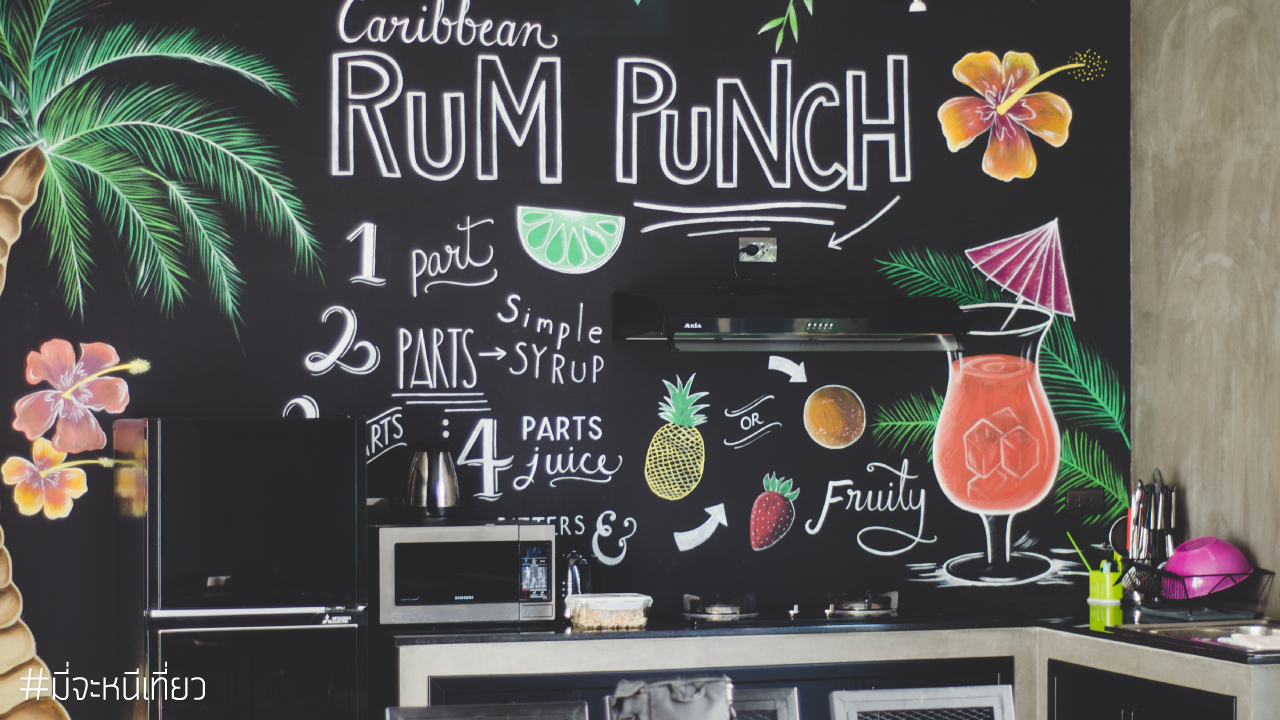 Caribbean
RUM PUNCH
1 part
2 PARTS → Simple
SYRUP
4 PARTS
juice
OR
Fruity
&
Axia
SAMSUNG
MITSUBISHI
#มี่จะหนีเที่ยว